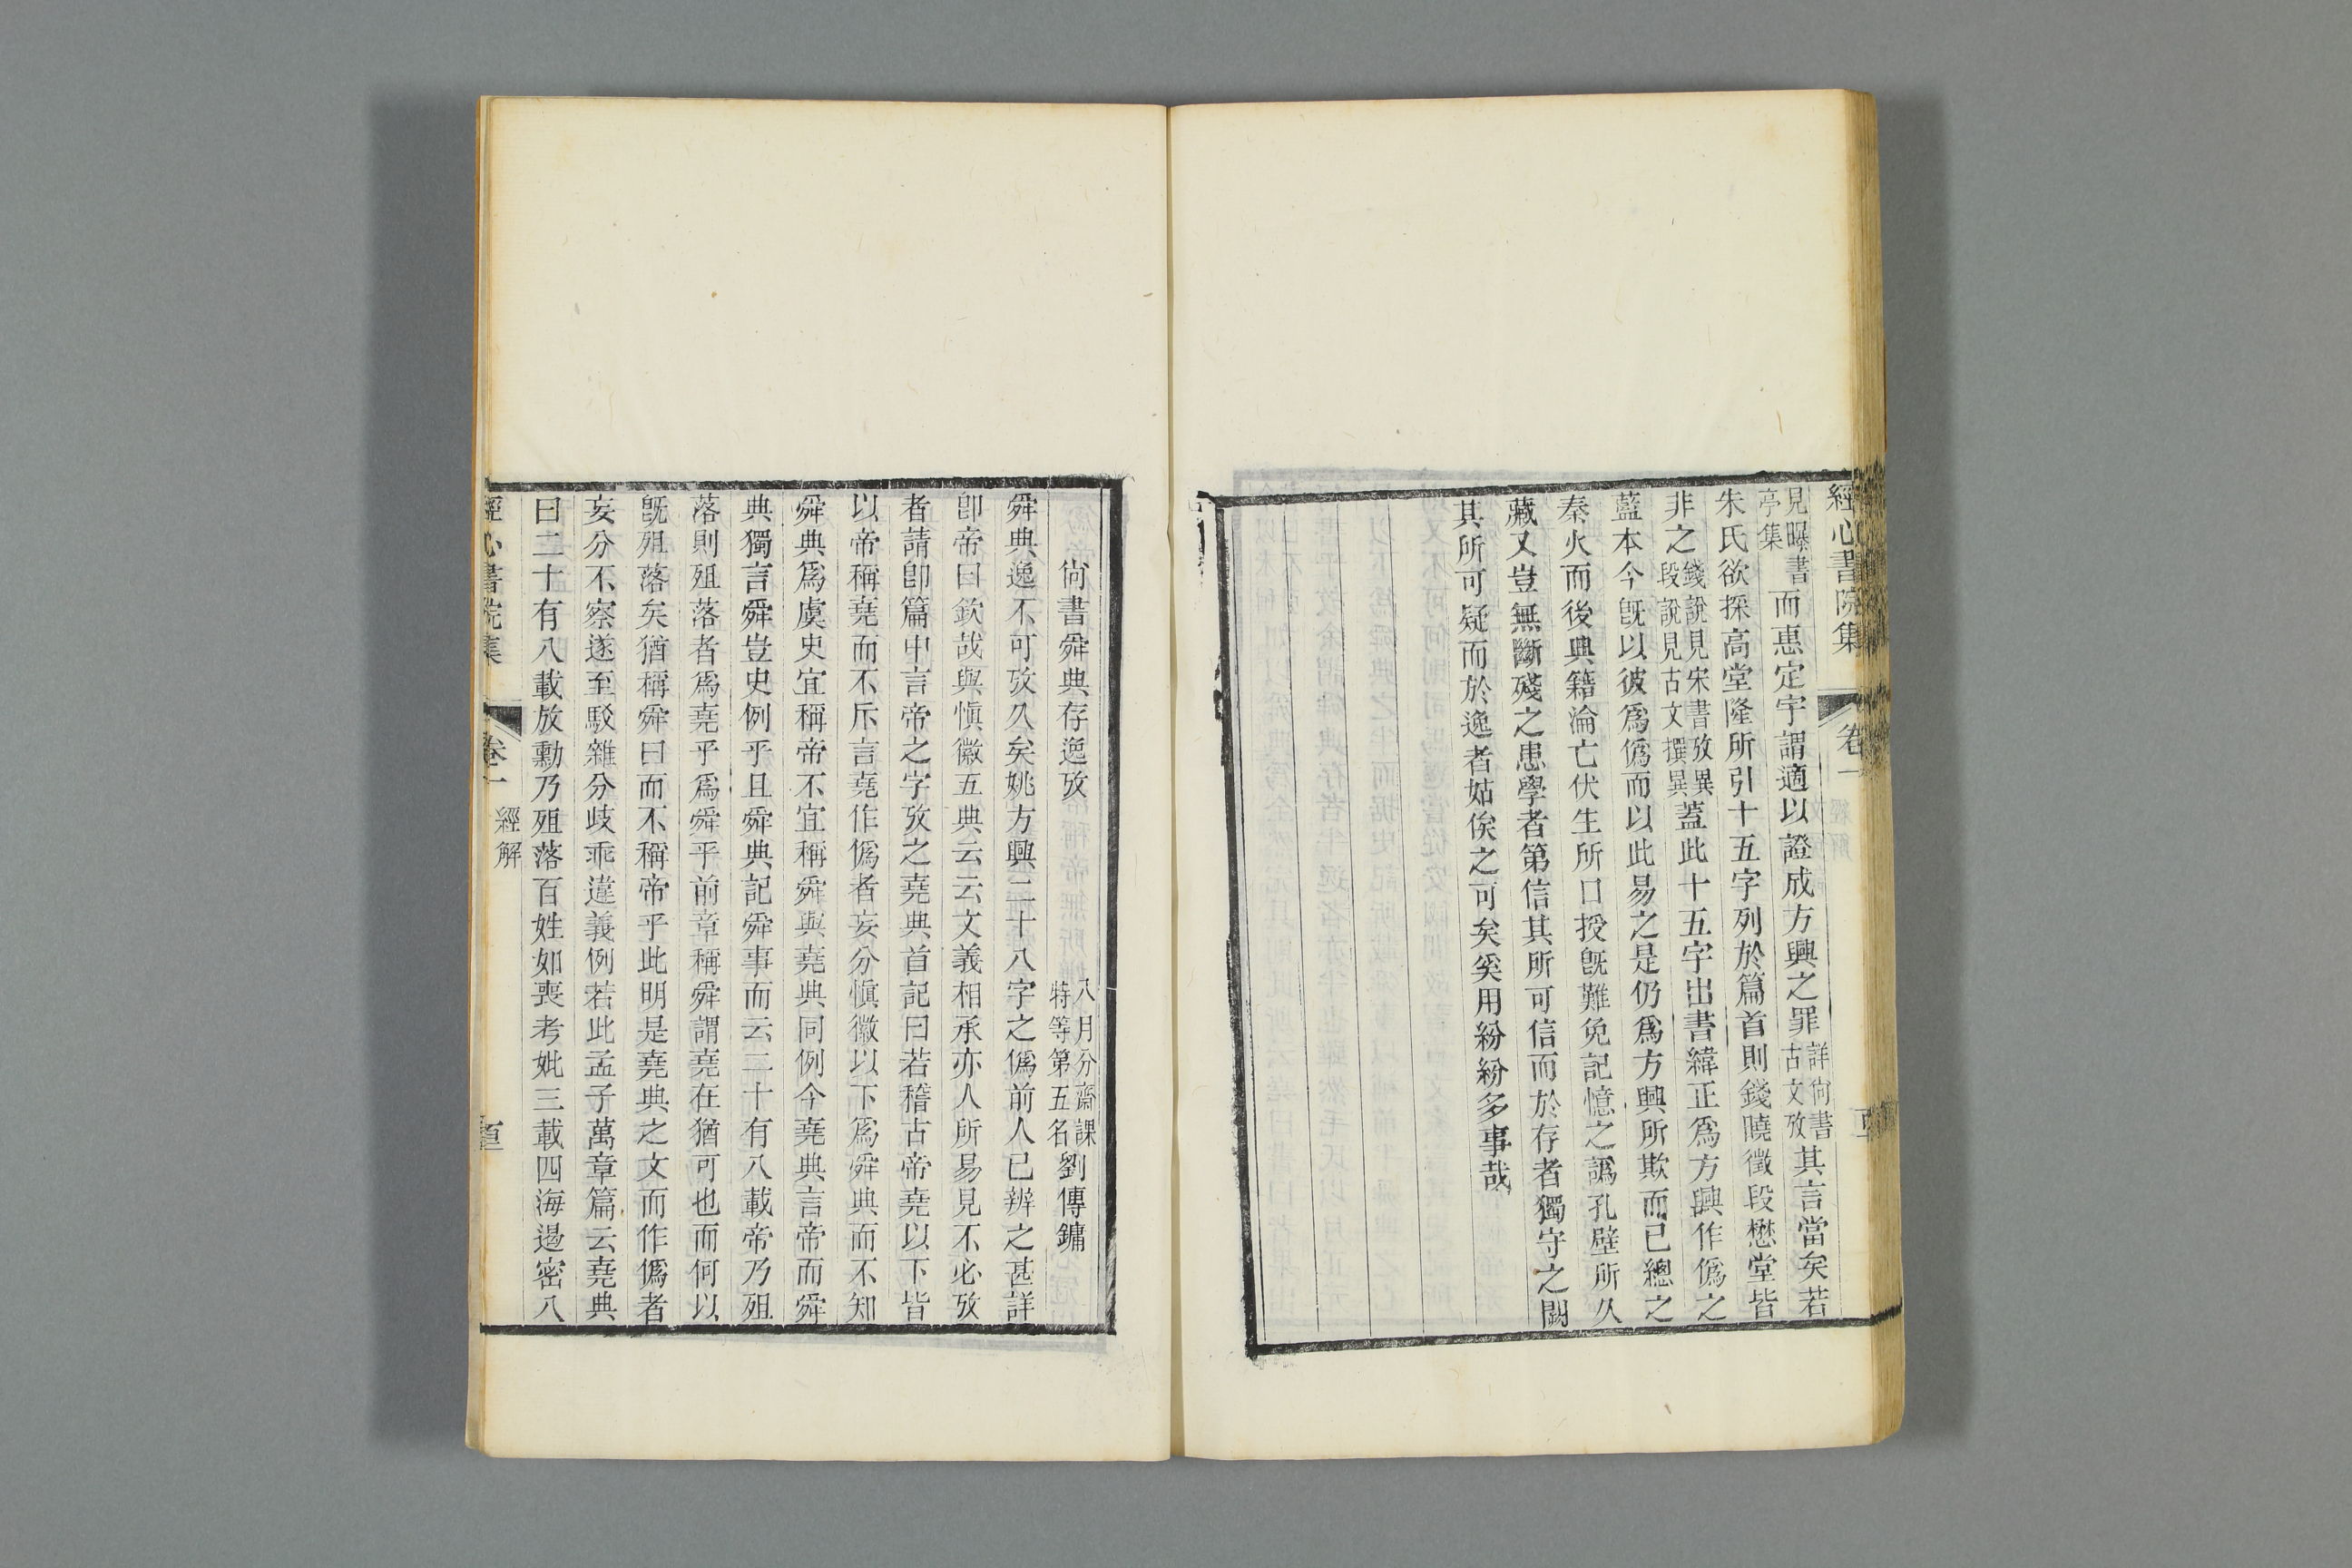 經心書院集 卷一
見曝書亭集而惠定宇謂適以證成方興之罪詳尙書古文攷其言當矣若
朱氏欲探高堂隆所引十五字列於篇首則錢曉徵段懋堂皆
非之錢說見宋書攷異段說見古文撰異蓋此十五字出書緯正爲方興作僞之
藍本今旣以彼爲僞而以此易之是仍爲方興所欺而已總之
秦火而後典籍淪亡伏生所口授旣難免記憶之譌孔壁所久
藏又豈無斷殘之患學者第信其所可信而於存者獨守之闕
其所可疑而於逸者姑俟之可矣奚用紛紛多事哉
尙書舜典存逸攷 八月分齋課特等第五名劉傳鏞
舜典逸不可攷久矣姚方興二十八字之僞前人已辨之甚詳
卽帝曰欽哉與愼徽五典云云文義相承亦人所易見不必攷
者請卽篇中言帝之字攷之堯典首記曰若稽古帝堯以下皆
以帝稱堯而不斥言堯作僞者妄分愼徽以下爲舜典而不知
舜典爲虞史宜稱帝不宜稱舜與堯典同例今堯典言帝而舜
典獨言舜豈史例乎且舜典記舜事而云二十有八載帝乃殂
落則殂落者爲堯乎爲舜乎前章稱舜謂堯在猶可也而何以
旣殂落矣猶稱舜曰而不稱帝乎此明是堯典之文而作僞者
妄分不察遂至駁雜分歧乖違義例若此孟子萬章篇云堯典
曰二十有八載放勳乃殂落百姓如喪考妣三載四海遏密八
經心書院集 卷一 經解